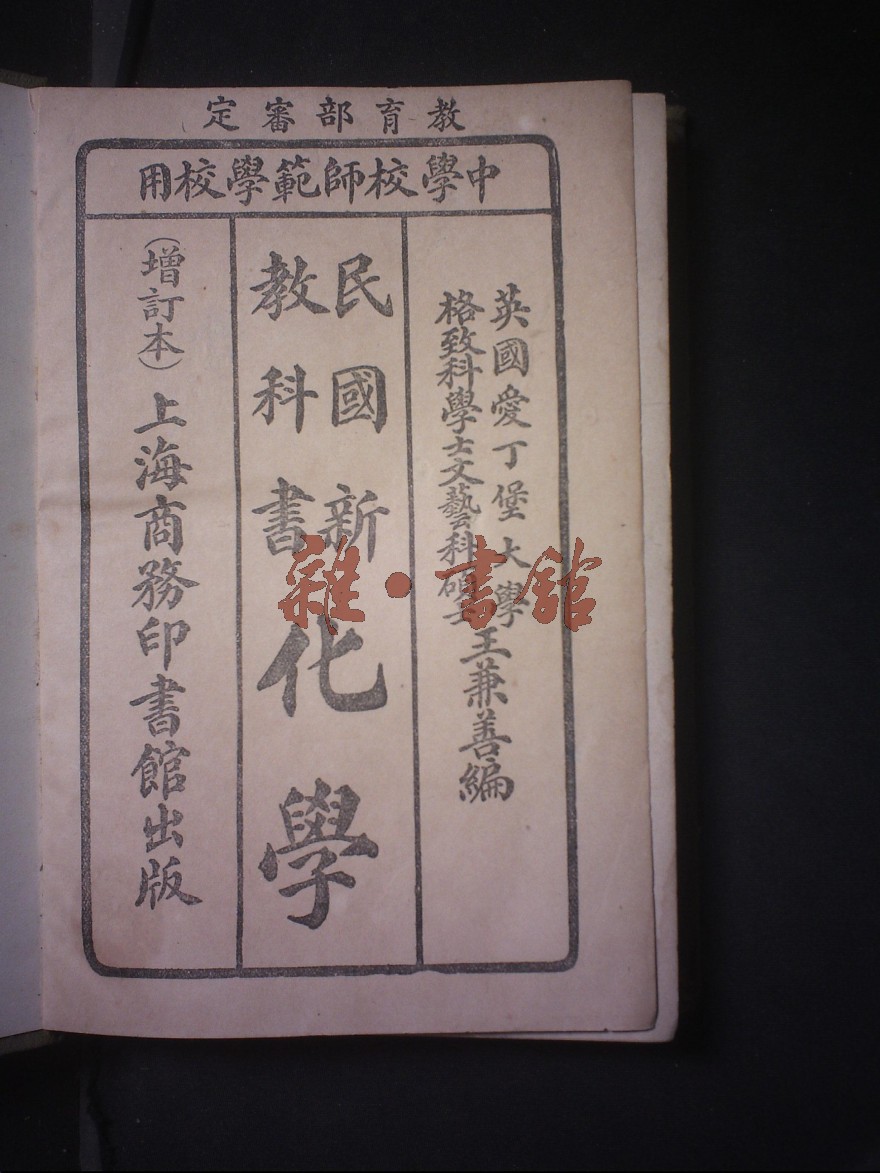 教育部審定
中學校師範學校用
英國愛丁堡大學
格致科學士文藝科碩士王兼善編
民國新
教科書
化學
(增訂本)上海商務印書館出版
雜·書館